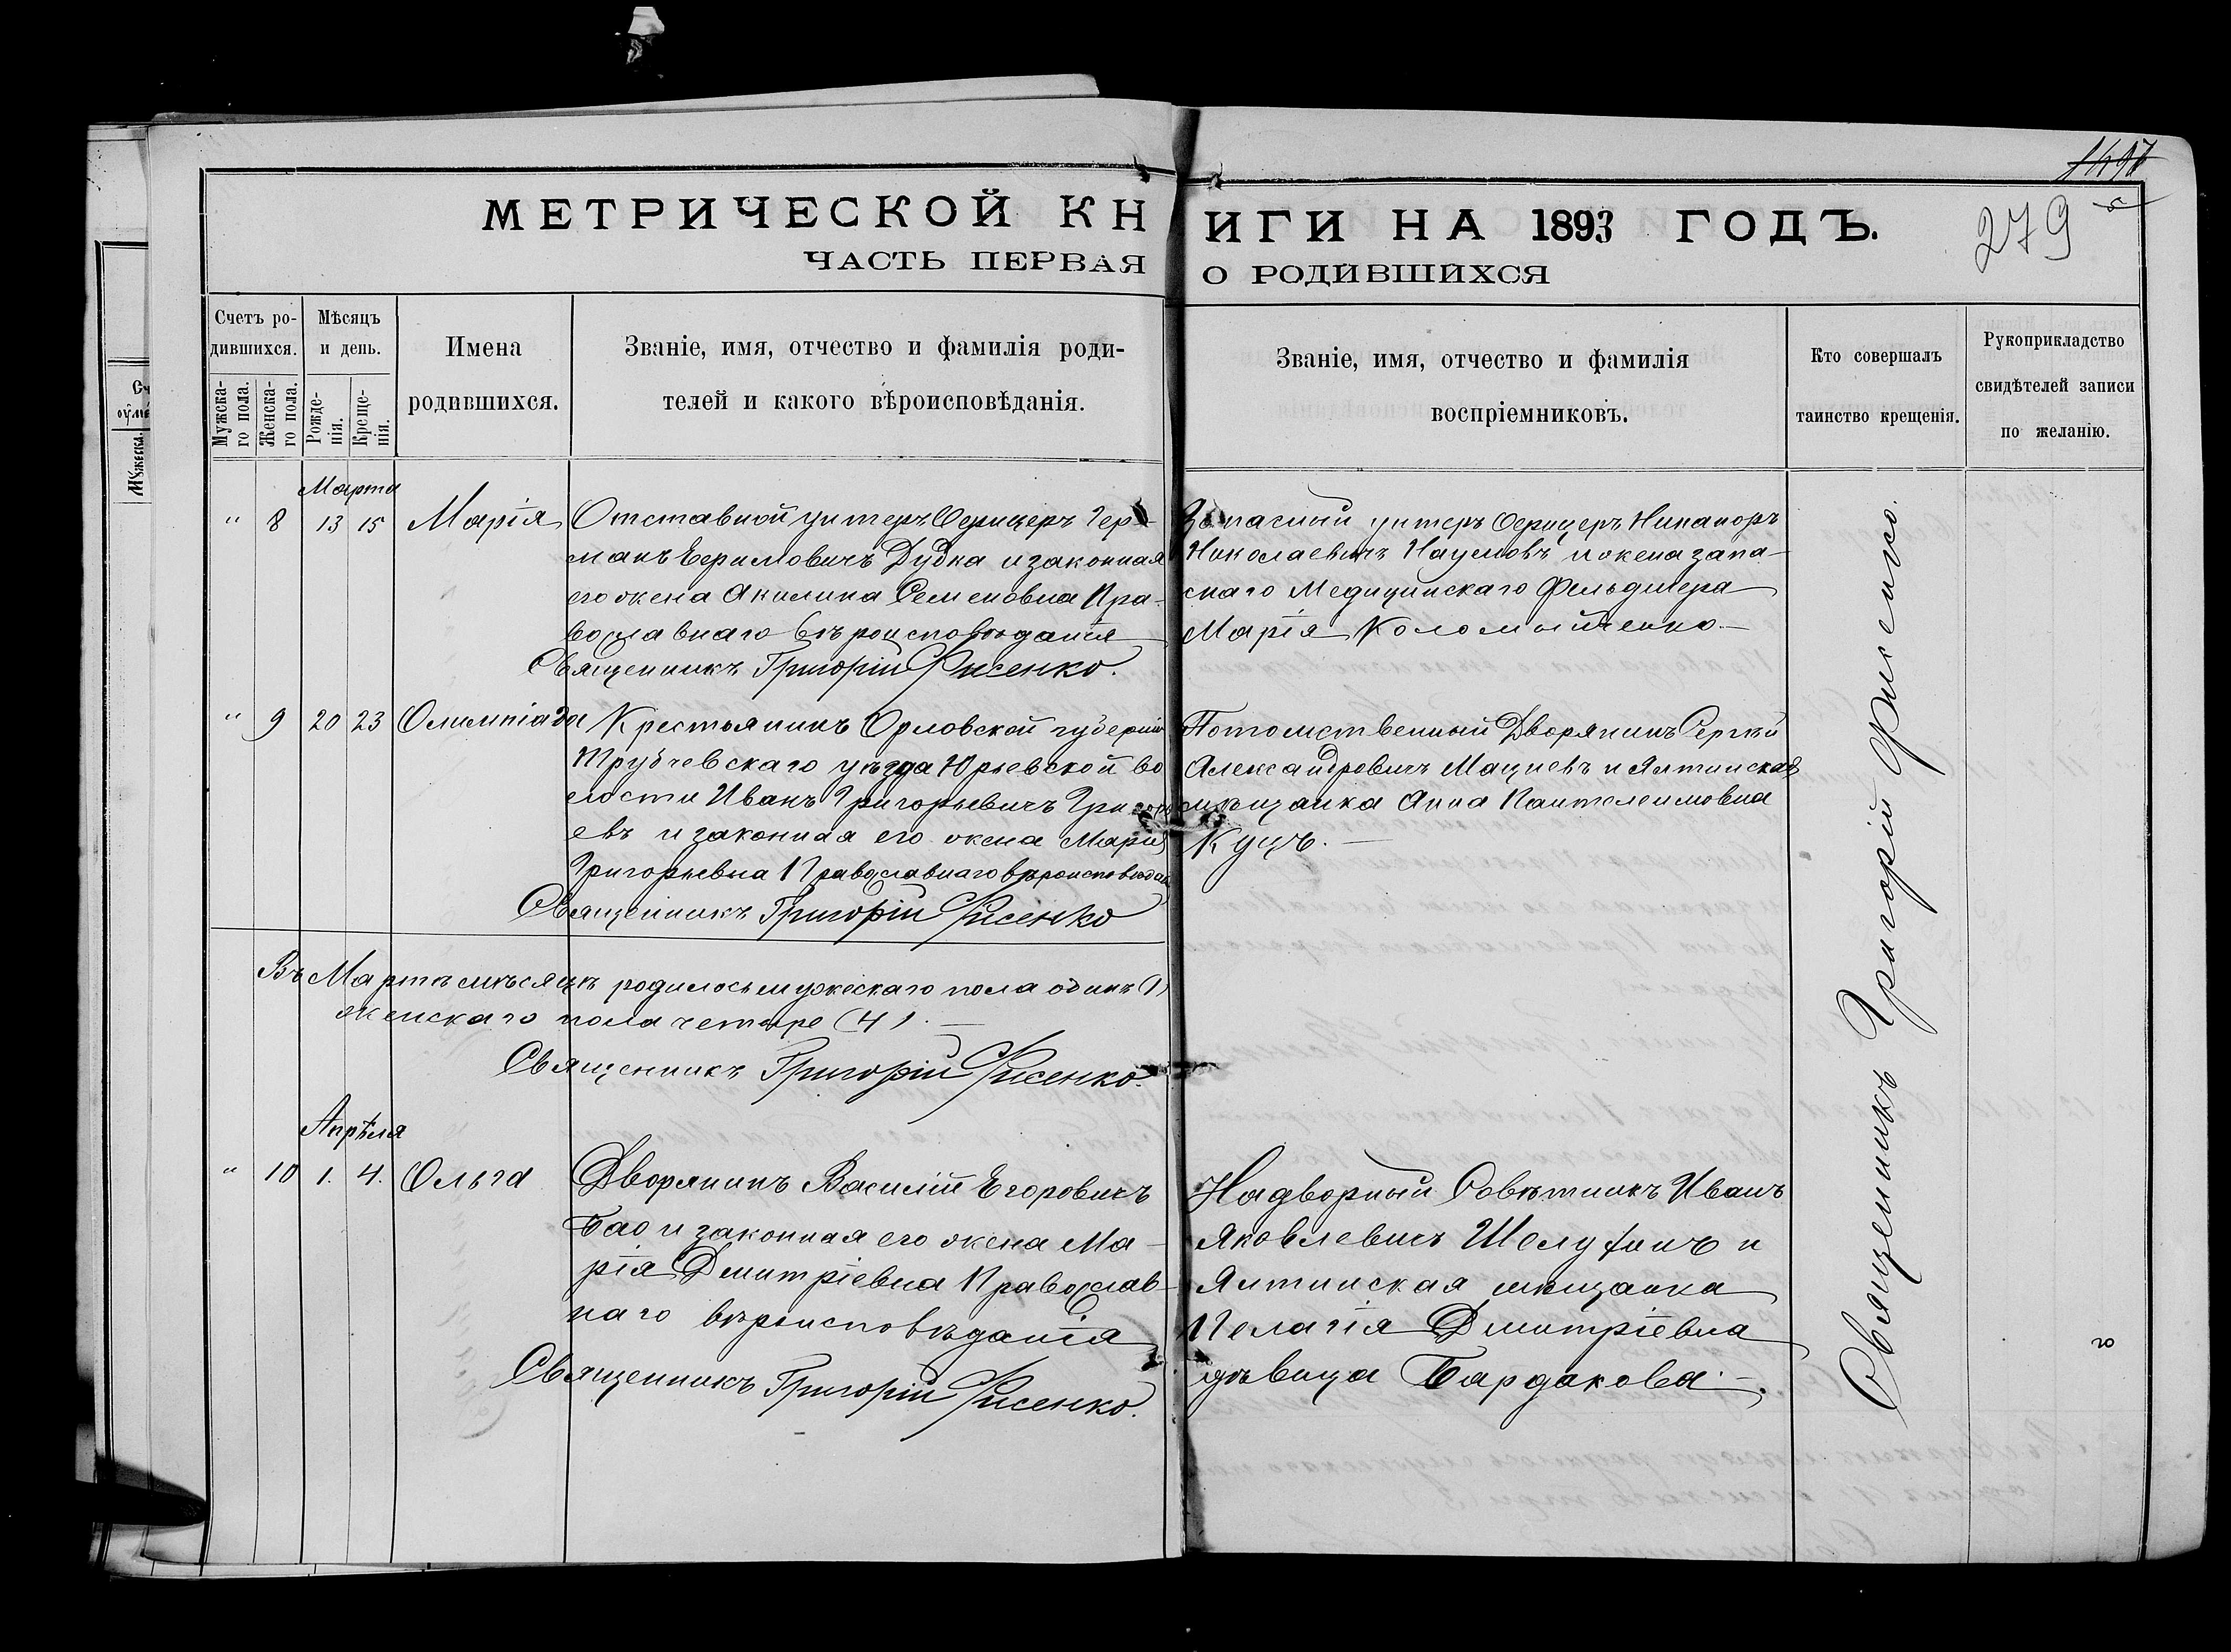 1497
279
МЕТРИЧЕСКОЙ КНИГИ НА 1893 ГОДЪ.
ЧАСТЬ ПЕРВАЯ О РОДИВШИХСЯ
Счетъ ро-
дившихся.
Мужска-
го пола.
Женска-
го пола.
Мѣсяцъ
и день.
Рожде-
нія.
Креще-
нія.
Имена
родившихся.
Званіе, имя, отчество и фамилія роди-
телей и какого вѣроисповѣданія.
Званіе, имя, отчество и фамилія
воспріемниковъ.
Кто совершалъ
таинство крещенія.
Рукоприкладство
свидѣтелей записи
по желанію.
Марта
" 8 13 15 Марія
Отставной унтеръ Офицеръ Гер-
манъ Ефимовичъ Дудка и законная
его жена Акилина Семеновна Пра-
вославнаго вѣроисповѣданія
Священникъ Григорій Фисенко.
Запасный унтеръ Офицеръ Никаноръ
Николаевичъ Наумовъ и жена запа-
снаго Медицинскаго Фельдшера
Марія Коломыйченко.—
" 9 20 23 Олимпіада
Крестьянинъ Орловской губерніи
Трубчевскаго уѣзда Юрьевской во
лости Иванъ Григорьевичъ Григорь
евъ и законная его жена Марія
Григорьевна Православнаго вѣроисповѣдан
Священникъ Григорій Фисенко
Потомственный Дворянинъ Сергѣй
Александровичъ Мациевъ и Ялтинская
мѣщанка Анна Пантелеимовна
Куцъ.—
Въ Мартѣ мѣсяцѣ родилось мужескаго пола одинъ (1)
женскаго пола четыре (4).—
Священникъ Григорій Фисенко.
Апрѣля
" 10 1. 4. Ольга
Дворянинъ Василій Егоровичъ
Бао и законная его жена Ма-
рія Дмитріевна Православ-
наго вѣроисповѣданія
Священникъ Григорій Фисенко.
Надворный Совѣтникъ Иванъ
Яковлевичъ Шелухинъ и
Ялтинская мѣщанка
Пелагія Дмитріевна
дѣвица Бардакова.—
Священникъ Григорій Фисенко.